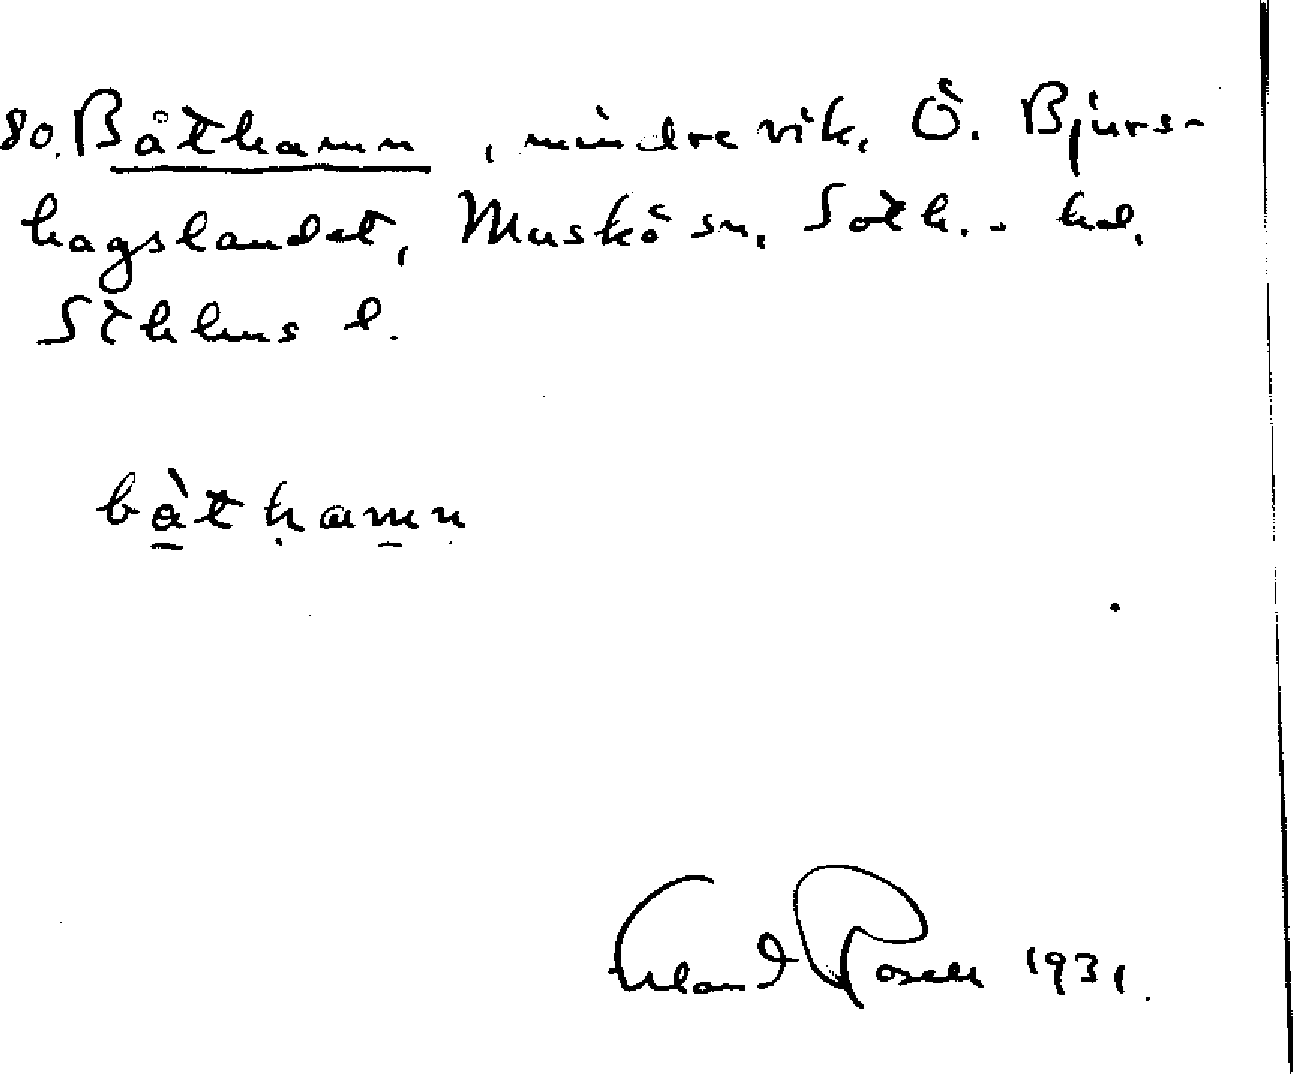 80. Båthamn, mindre vik, Ö. Bjurs-
hagslandet, Muskö sn, Soth. - hd.
Sthlms l.
bàthamn
Erland Rosell 1931.